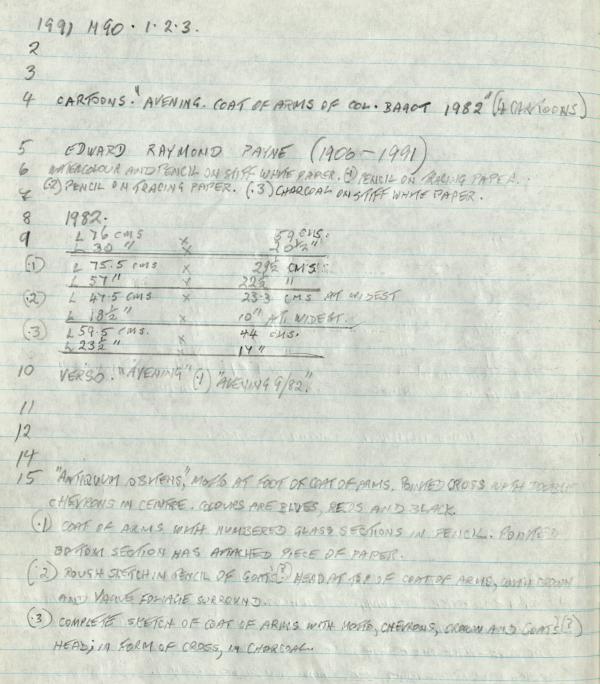 1991 M90 · 1 · 2 · 3.
2
3
4 CARTOONS. "AVENING. COAT OF ARMS OF COL. BAGOT 1982" (4 CARTOONS)
5 EDWARD RAYMOND PAYNE (1906 - 1991)
6 WATERCOLOUR AND PENCIL ON STIFF WHITE PAPER. (.1) PENCIL ON TRACING PAPER.
7 (.2) PENCIL ON TRACING PAPER. (.3) CHARCOAL ON STIFF WHITE PAPER.
8 1982.
9 L 76 CMS x 59 CMS.
L 30 " x
(.1) L 75.5 CMS x CMS.
L 57 " x 22½ "
(.2) L 47.5 CMS x CMS AT WIDEST
L 18½ " x 10" AT WIDEST.
(.3) L 59.5 CMS. x 44 CMS.
L 23½ " x 17 "
10 VERSO. "AVENING" (.1) "AVENING 9/82."
11
12
14
15 "ANTIQUUM OBTINENS," MOTTO AT FOOT OF COAT OF ARMS. POINTED CROSS WITH DOUBLE
CHEVRONS IN CENTRE. COLOURS ARE BLUES, REDS AND BLACK.
(.1) COAT OF ARMS WITH NUMBERED GLASS SECTIONS IN PENCIL. POINTED
BOTTOM SECTION HAS ATTACHED PIECE OF PAPER.
(.2) ROUGH SKETCH IN PENCIL OF GOATS (?) HEAD AT TOP OF COAT OF ARMS, CROWN
AND VAGUE FOLIAGE SURROUND.
(.3) COMPLETE SKETCH OF COAT OF ARMS WITH MOTTO, CHEVRONS, CROWN AND GOATS (?)
HEAD; IN FORM OF CROSS, IN CHARCOAL.